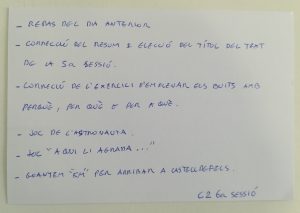 - REPÀS DEL DIA ANTERIOR
- CORRECCIÓ DEL RESUM I ELECCIÓ DEL TÍTOL DEL TEXT
DE LA 5a SESSIÓ.
- CORRECCIÓ DE L'EXERCICI D'EMPLENAR ELS BUITS AMB
PERQUÈ, PER QUÈ O PER A QUÈ.
- JOC DE L'ASTRONAUTA.
- JOC "A QUI LI AGRADA..."
- GUANYEM "KM" PER ARRIBAR A CASTELLDEFELS.
C2 6a SESSIÓ